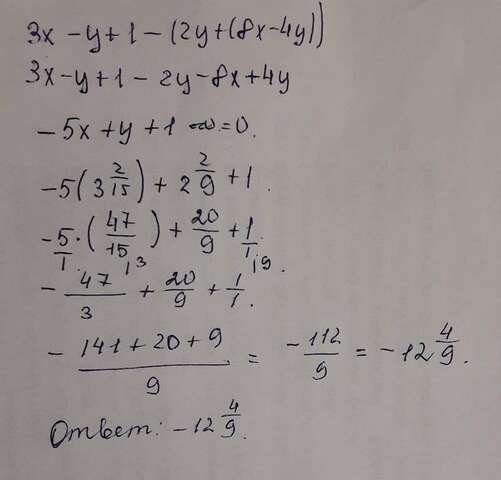 3x - y + 1 - (2y + (8x - 4y))
3x - y + 1 - 2y - 8x + 4y
-5x + y + 1 = 0.
-5(3 2/15) + 2 2/9 + 1.
-5/1 · (47/15) + 20/9 + 1/1.
- 47/3 |3 + 20/9 + 1/1 |9.
- 141 + 20 + 9 / 9 = -112/9 = -12 4/9.
Ответ: -12 4/9.